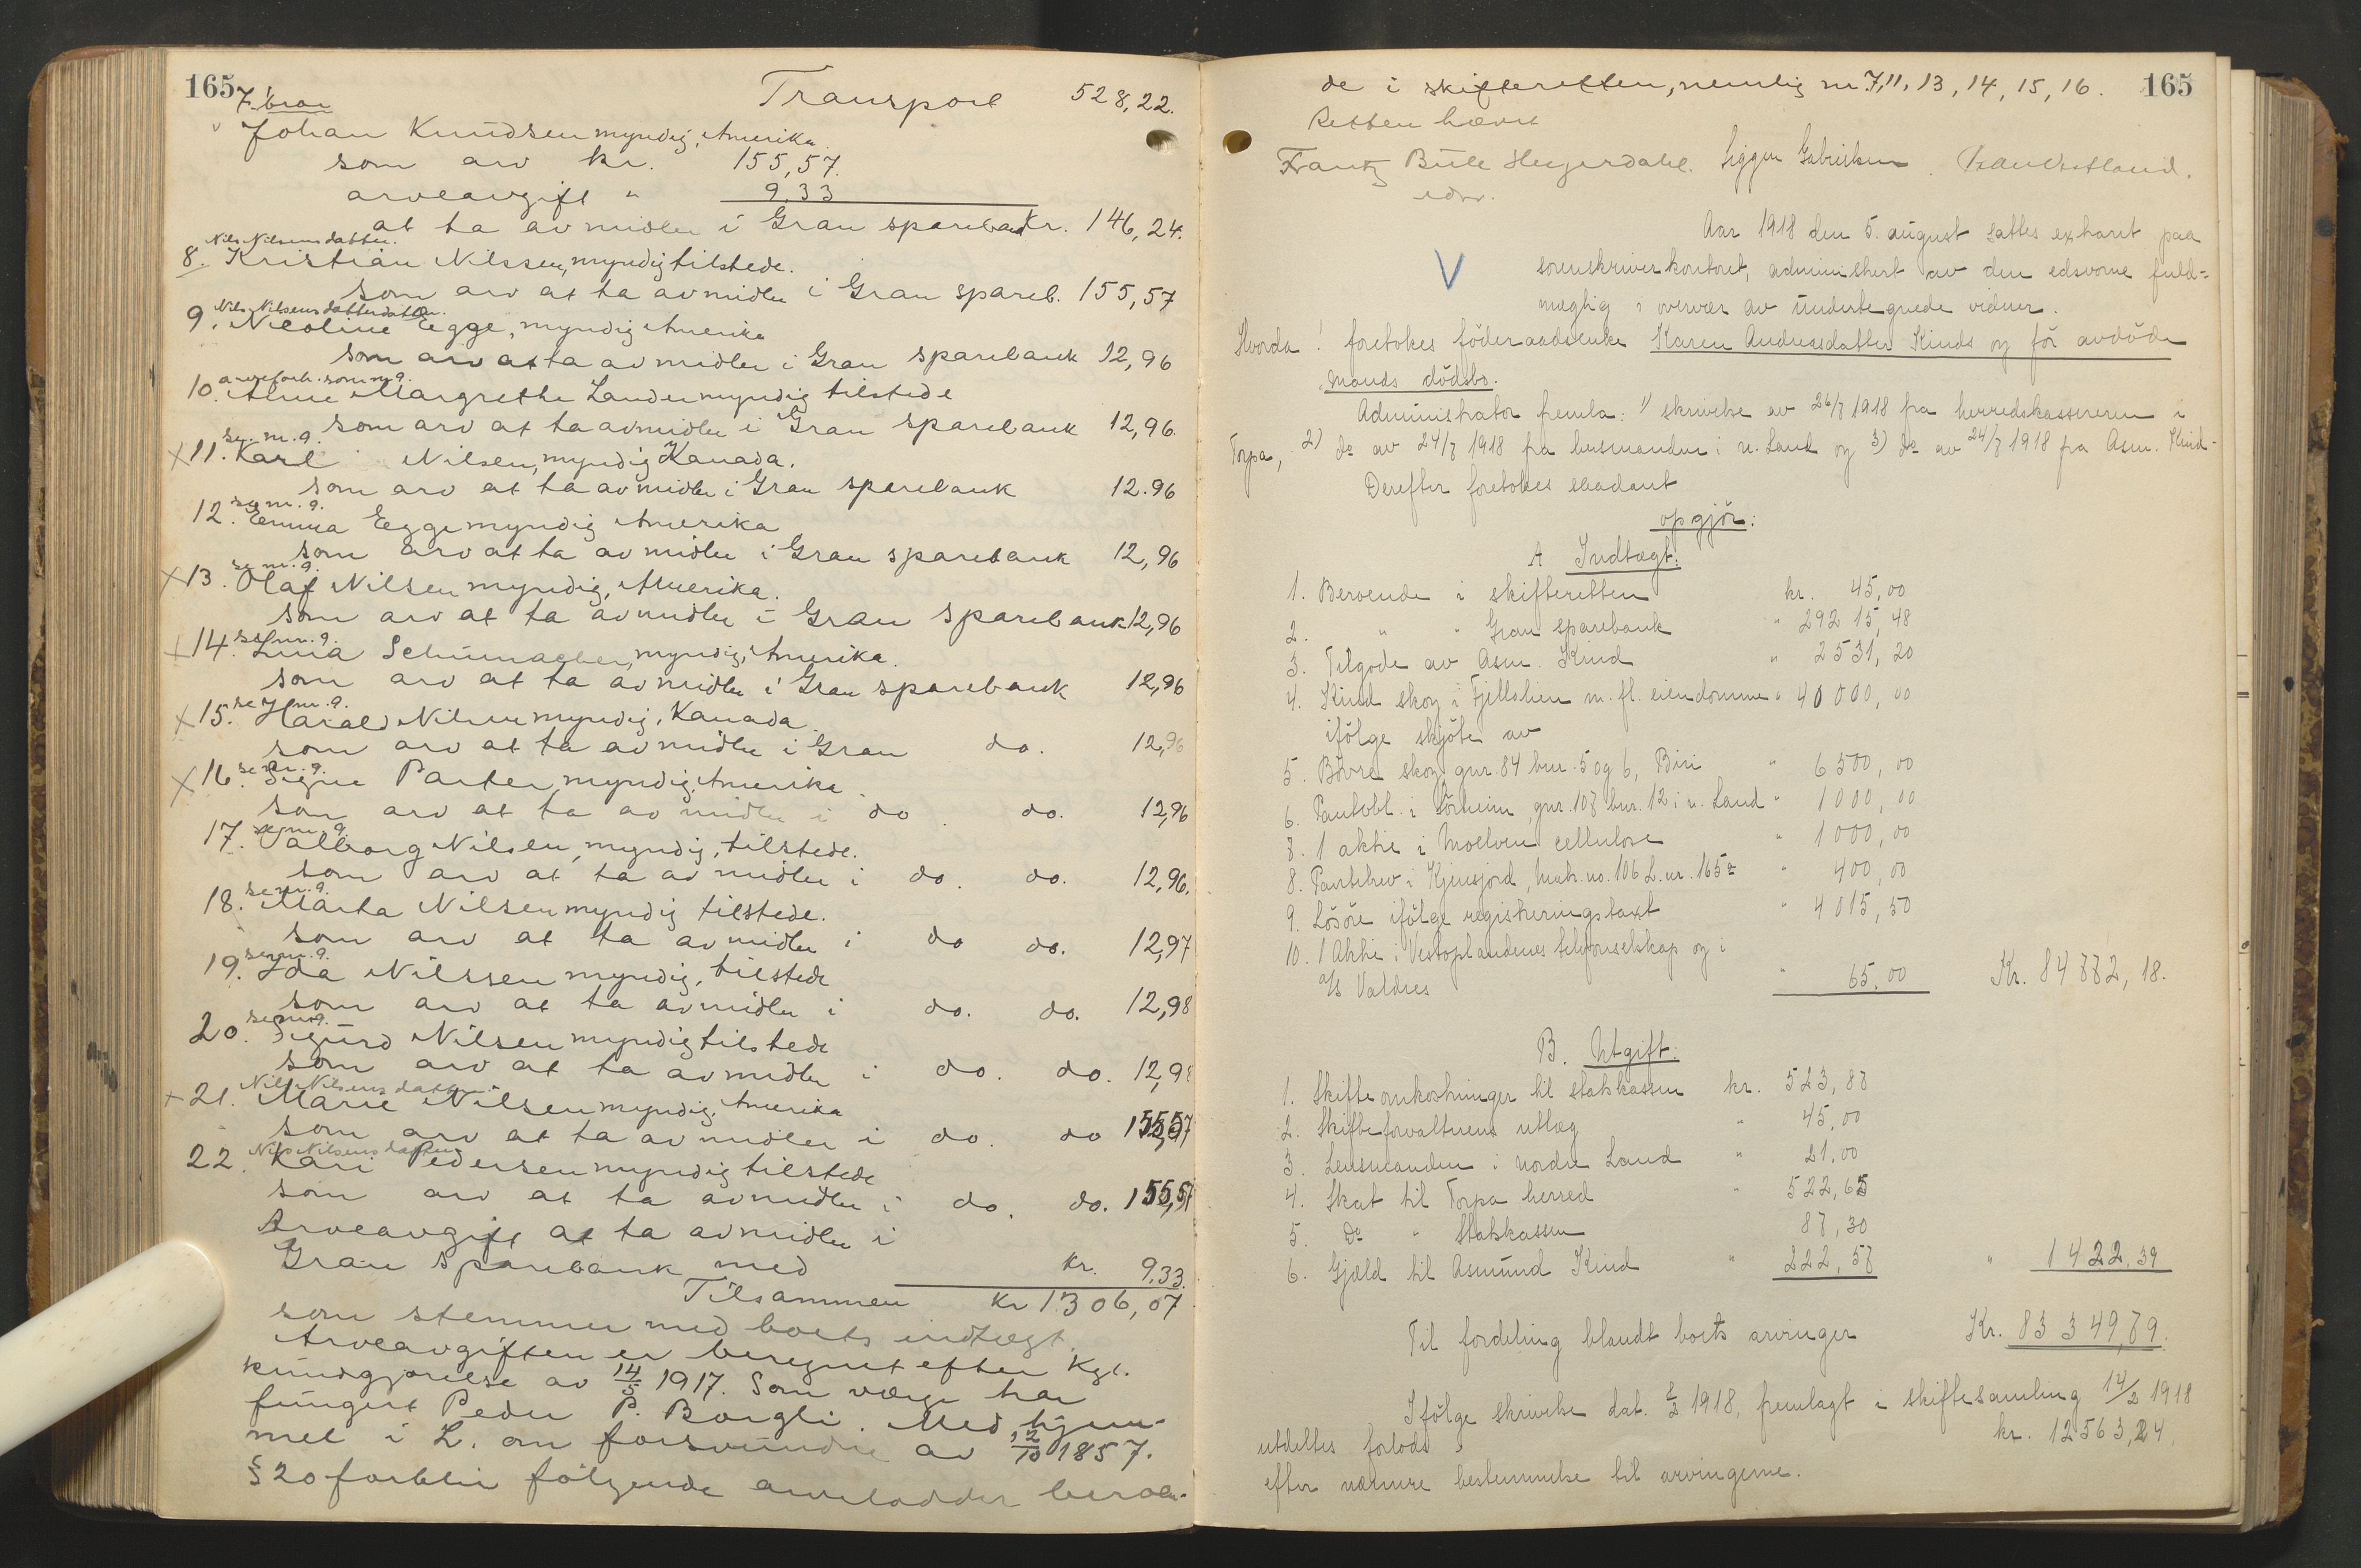 165
7. bror
Transport 528,22.
Johan Knudsen myndig, Amerika.
som arv kr. 155,57.
arveavgift " 9,33
at ta av midler i Gran sparebank Kr. 146,24.
Nils Nilsens datter.
8. Kristian Nilssen, myndig tilstede.
som arv at ta av midler i Gran spareb. 155,57
Nils Nilsens datterdatter.
9. Nicoline Egge, myndig Amerika
som arv at ta av midler i Gran sparebank 12,96
arveforh. som nr. 9.
10. Anne Margrethe Lander myndig tilstede
som arv at ta av midler i Gran sparebank 12,96.
se nr. 9.
x 11. Karl Nilsen, myndig Kanada.
som arv at ta av midler i Gran sparebank 12.96
se nr. 9.
12. Emma Egge myndig Amerika
som arv at ta av midler i Gran sparebank 12,96
se nr. 9.
x 13. Olaf Nilsen myndig, Amerika.
som arv at ta av midler i Gran sparebank 12,96
se nr. 9.
x 14. Lina Schumacher, myndig, Amerika.
som arv at ta av midler i Gran sparebank 12,96
se nr. 9.
x 15. Harald Nilsen myndig, Kanada.
som arv at ta av midler i Gran do. 12,96
se nr. 9.
x 16. Signe Parter myndig, Amerika.
som arv at ta av midler i do. do. 12,96
se nr. 9.
17. Valborg Nilsen, myndig, tilstede.
som arv at ta av midler i do. do. 12,96.
se nr. 9.
18. Marta Nilsen myndig tilstede.
som arv at ta av midler i do do. 12,97
se nr. 9.
19. Ida Nilssen myndig, tilstede
som arv at ta av midler i do. do. 12,98
se nr. 9.
20. Sigurd Nilsen myndig tilstede
som arv at ta av midler i do. do. 12,98
Nils Nilsens datter.
x 21. Marie Nilsen myndig, Amerika
som arv at ta av midler i do. do 155,57
Nils Nilsens datter
22. Kari Pedersen myndig tilstede
som arv at ta av midler i do. do. 155,57
Arveavgift at ta av midler i
Gran Sparebank med kr. 9,33.
Tilsammen kr 1306,07
som stemmer med boets indtægt.
Arveavgiften er beregnet efter Kgl.
kundgjørelse av 14/5 1917. Som værge har
fungert Peder P. Borgli. Med hjem-
mel i L. om forsvundne av 12/10 1857.
§ 20 forblir følgende arvelodder beroen-
165
de i skifteretten, nemlig nr. 7, 11, 13, 14, 15, 16.
Retten hævet
Frantz Bull Heyerdahl. Sigger Gabrielsen.
edsv.
Aar 1918 den 5. august sattes extraret paa
sorenskriverkontoret, administrert av den edsvorne fuld=
mægtig i overvær av undertegnede vidner.
V
Hvorda!
foretokes föderaadsenke Karen Andreasdatter Kinds og för avdöde
mands dödsbo.
Administrator fremla: 1) skrivelse av 26/7 1918 fra herredskassereren i
Torpa, 2) do av 24/7 1918 fra lensmanden i n. Land og 3) do av 24/7 1918 fra Asm. Kind-
Derefter foretokes saadant
opgjör:
A Indtægt:
1. Beroende i skifteretten kr. 45,00
2. " " Gran sparebank " 292 15,48
3. Tilgode av Asm. Kind " 2531,20
4. Kind skog i Fjellslien m. fl. eiendomme " 40000,00
ifölge skjöte av
5. Bövre skog gnr. 84 bnr. 5 og 6, Biri " 6500,00
6. Pantobl. i Sörheim, gnr. 107 bnr. 12 i n. Land " 1000,00
7. 1 aktie i Moelven cellulose " 1000,00
8. Pantebrev i Kjensjord, Matr. no. 106 L. nr. 165a " 400,00
9. Lösöre ifölge registreringstaxt " 4015,50
10. 1 Aktie i Vestoplandenes telefonselskap og i
A/S Valdres " 65,00 Kr. 84772,18.
B. Utgift:
1. Skifteomkostninger til statskassen kr. 523,87
2. Skifteforvalterens utlæg " 45,00
3. Lensmanden i Nordre Land " 21,00
4. Skat til Torpa herred " 522,65
5. Do " Statskassen 87,30
6. Gjæld til Asmund Kind " 222,57 " 1422,39
Til fordeling blandt boets arvinger Kr. 83349,79.
Ifölge skrivelse dat. 2/2 1918, fremlagt i skiftesamling 14/2 1918
utdeltes forlods kr. 12563,24.
efter nærmere bestemmelse til arvingerne.